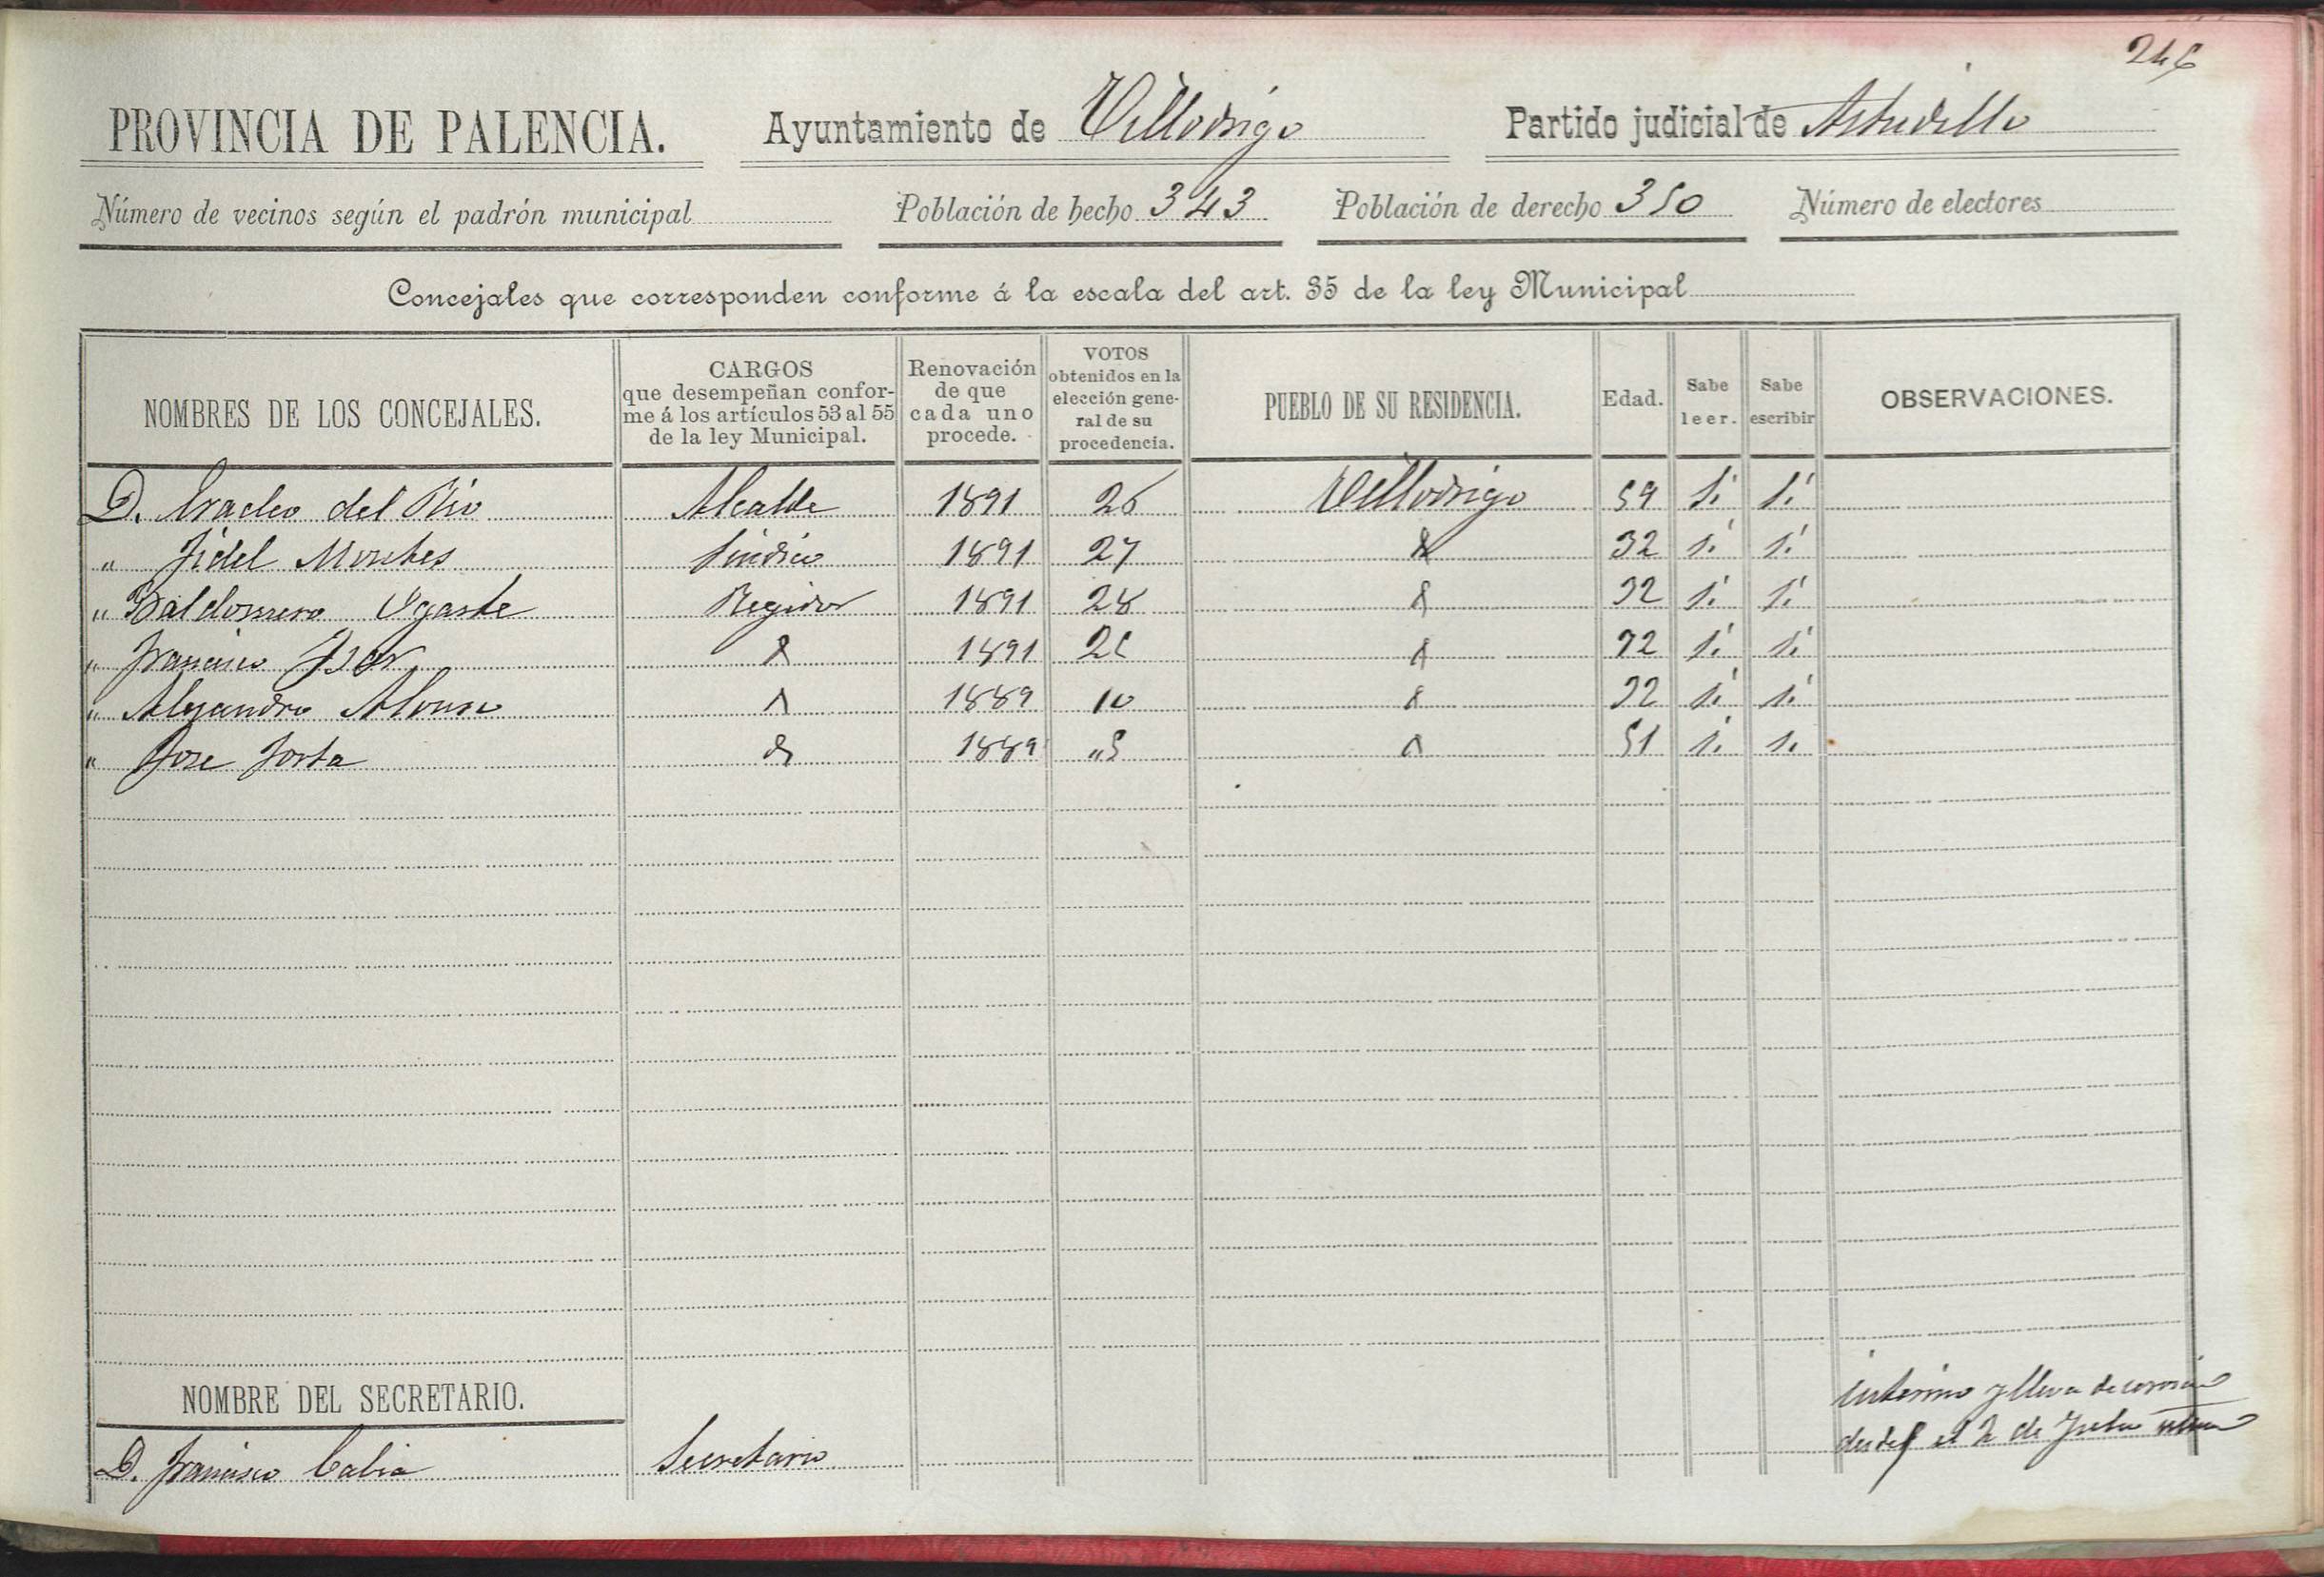 246
PROVINCIA DE PALENCIA. Ayuntamiento de Villodrigo Partido judicial de Astudillo
Número de vecinos según el padrón municipal Población de hecho 343 Población de derecho 350 Número de electores
Concejales que corresponden conforme á la escala del art. 35 de la ley Municipal
NOMBRES DE LOS CONCEJALES. CARGOS que desempeñan conforme á los artículos 53 al 55 de la ley Municipal. Renovación de que cada uno procede. VOTOS obtenidos en la elección general de su procedencia. PUEBLO DE SU RESIDENCIA. Edad. Sabe leer. Sabe escribir OBSERVACIONES.
D. Eracleo del Rio Alcalde 1891 26 Villodrigo 59 Si Si
" Fidel Montes Sindico 1891 27 32 Si Si
" Baldomero Ogaste Regidor 1891 28 32 Si Si
" Francisco 1891 32 Si Si
" Alejandro Alonso 1889 10 32 Si Si
" Jose 1889 "5 51 Si Si
NOMBRE DEL SECRETARIO.
D. Francisco Calvia Secretario interino y lleva
desde el 2 de Julio